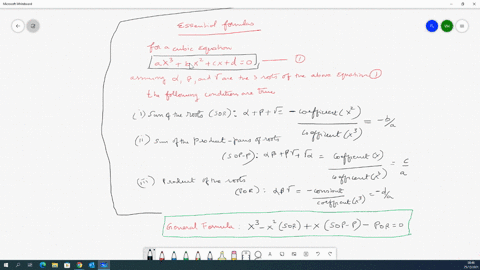 Microsoft Whiteboard
Essential formulas
for a cubic equation
ax³ + bx² + cx + d = 0, —— ①
assuming α, β, and γ are the 3 roots of the above equation ①
the following condition are true
(i) Sum of the roots (SOR): α + β + γ = - coefficient (x²) / coefficient (x³) = -b/a
(ii) Sum of the Product-pairs of roots
(SOP-P): αβ + βγ + γα = coefficient (x) / coefficient (x³) = c/a
(iii) Product of the roots
(POR): αβγ = - constant / coefficient (x³) = -d/a
General Formula: x³ - x² (SOR) + x (SOP-P) - POR = 0